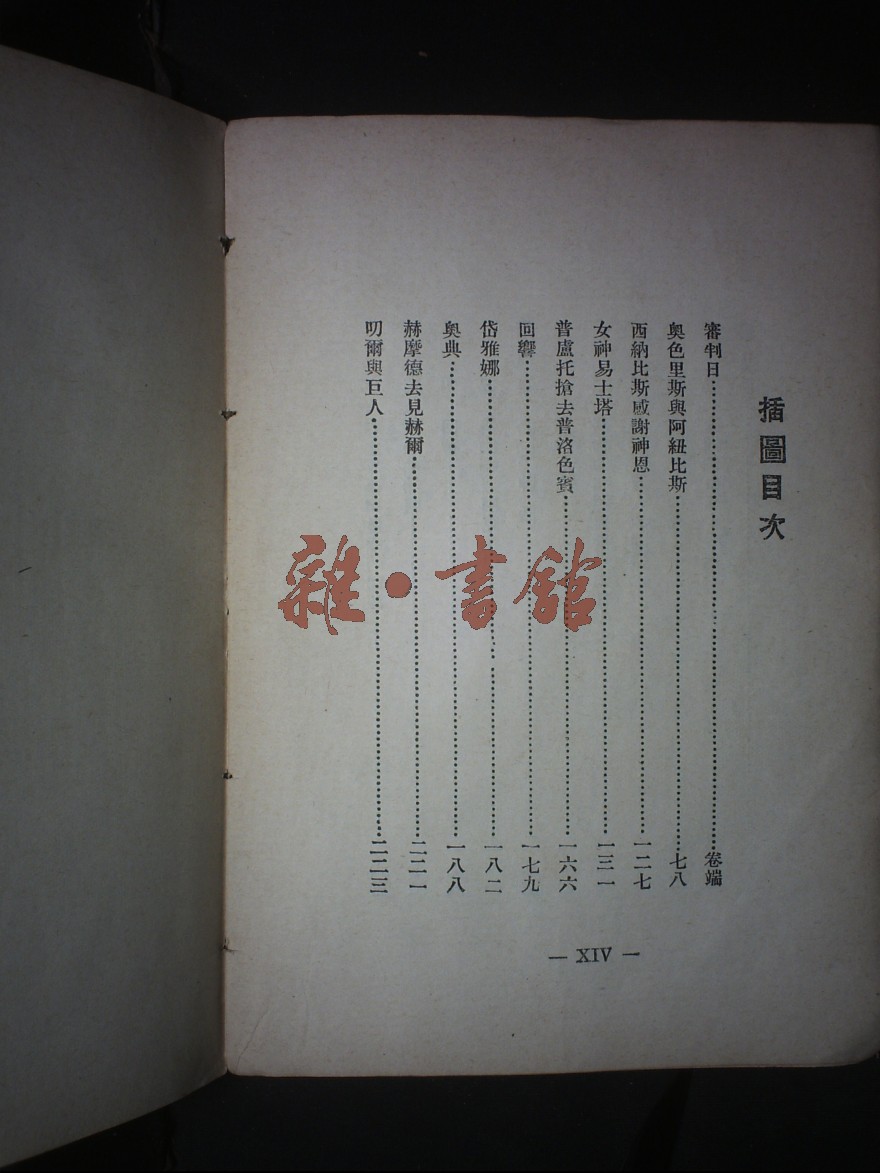 插圖目次
審判日……卷端
奥色里斯與阿紐比斯……七八
西納比斯感謝神恩……一二七
女神易士塔……一三一
普盧托搶去普洛色賓……一六六
回響……一七九
岱雅娜……一八二
奥典……一八八
赫摩德去見赫爾……二二一
叨爾與巨人……二二三
— XIV —
雜·書館